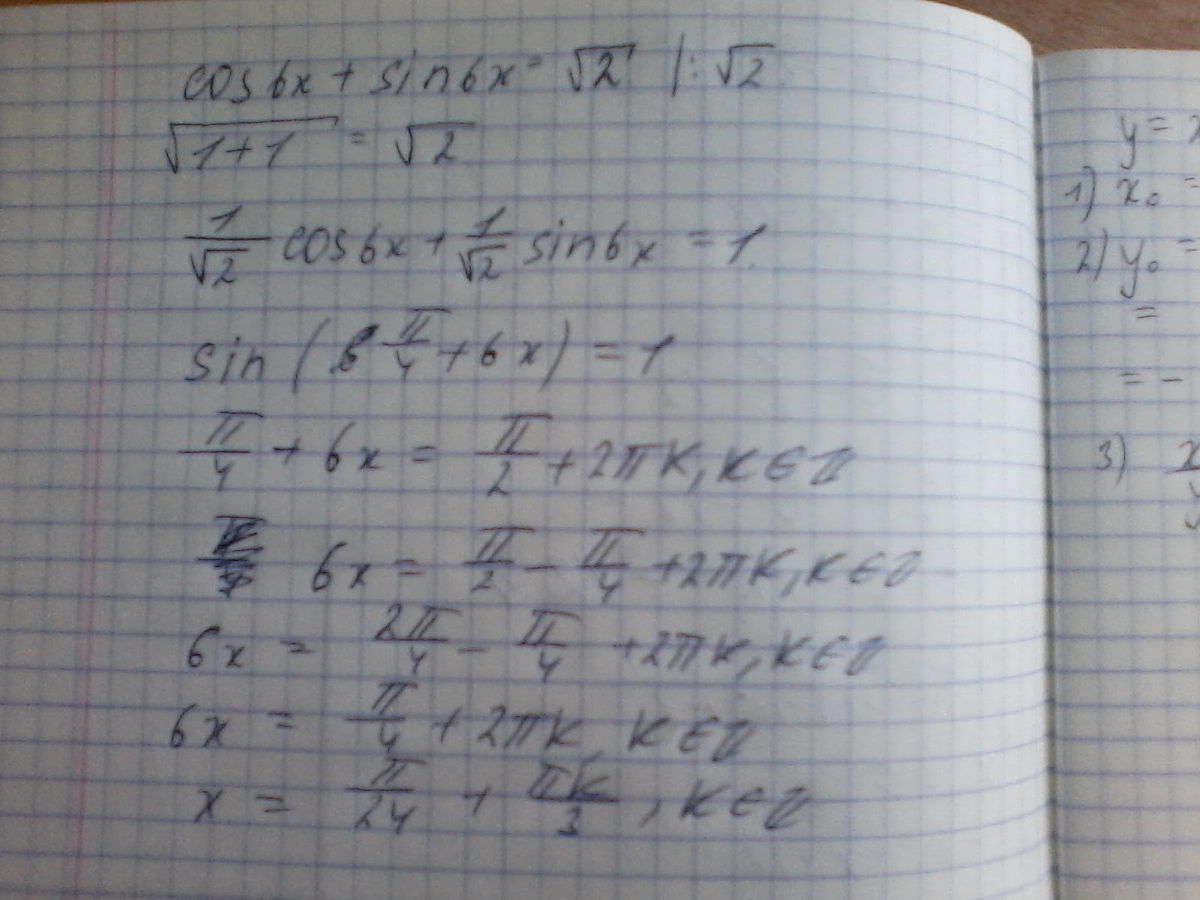 cos6x + sin6x = √2 |: √2
√1+1 = √2
1/√2 cos6x + 1/√2 sin6x = 1.
sin (π/4 + 6x) = 1
π/4 + 6x = π/2 + 2πk, k∈Z
6x = π/2 - π/4 + 2πk, k∈Z
6x = 2π/4 - π/4 + 2πk, k∈Z
6x = π/4 + 2πk, k∈Z
x = π/24 + πk/3, k∈Z
y =
1) x₀ =
2) y₀ =
=
= -
3) x